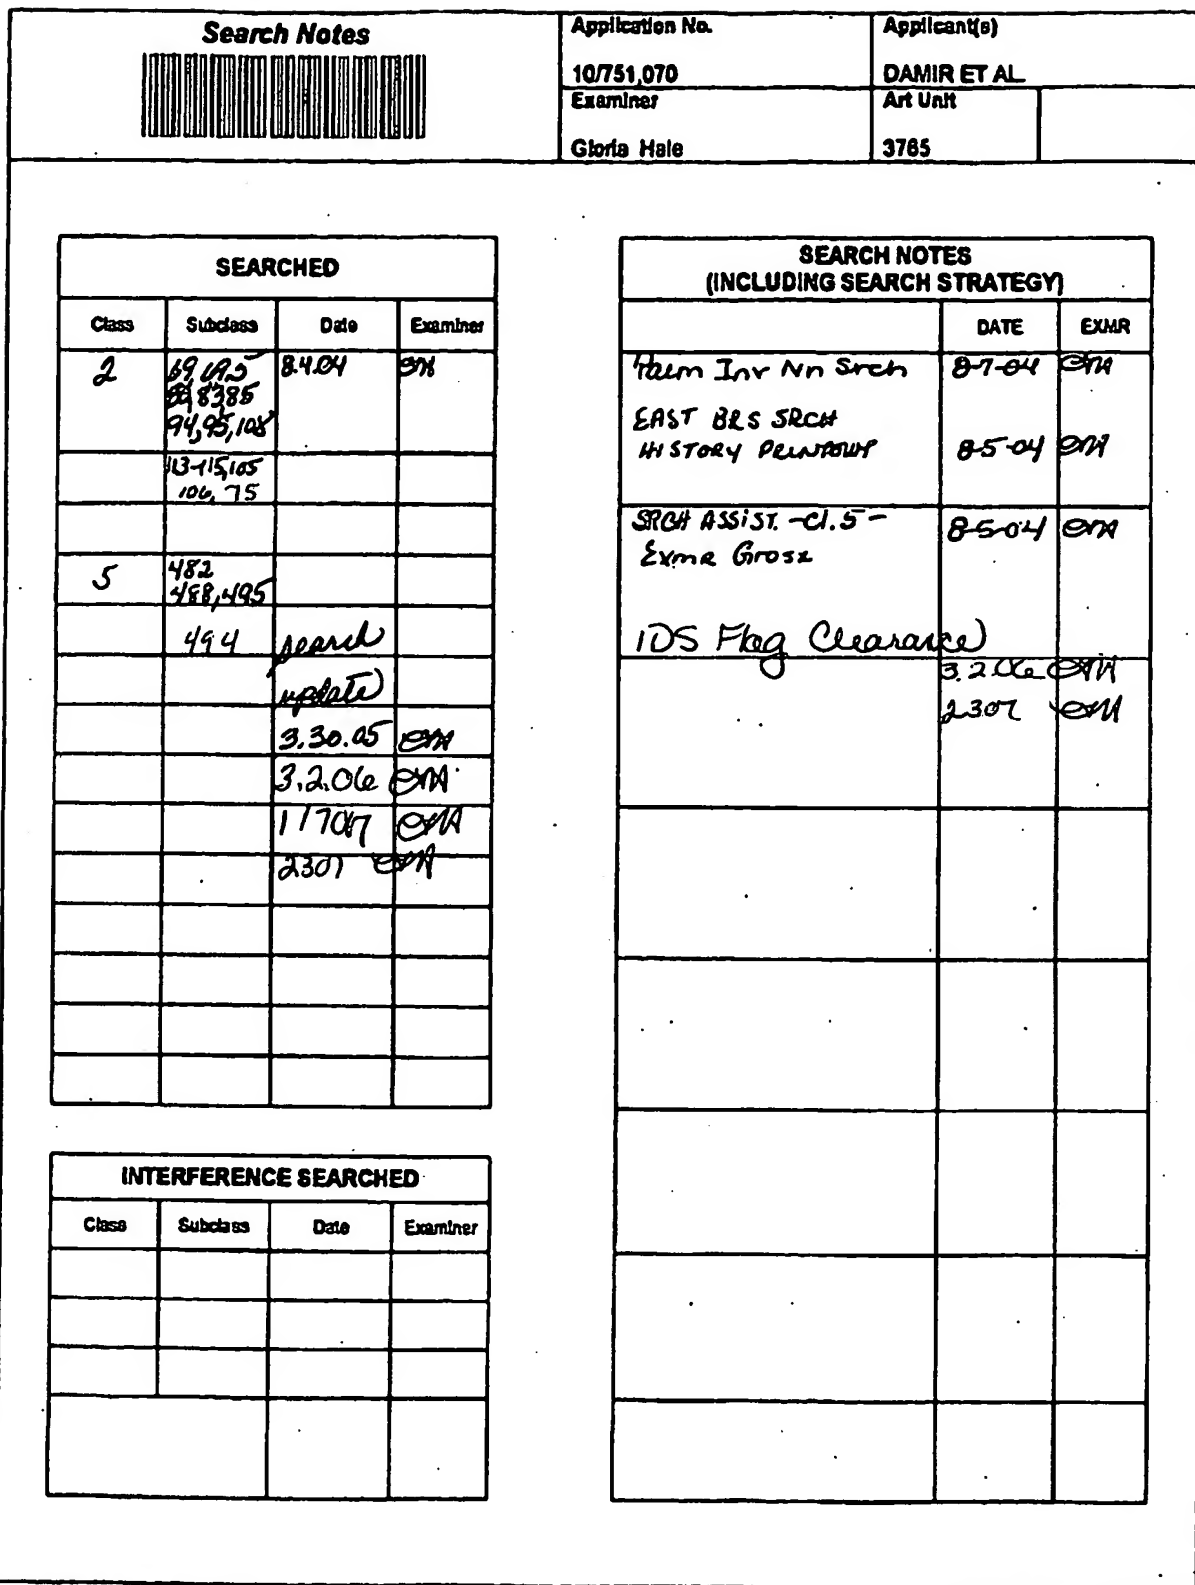 Search Notes
Application No.
10/751,070
Applicant(s)
DAMIR ET AL.
Examiner
Gloria Hale
Art Unit
3765
SEARCHED
Class Subclass Date Examiner
2 69, 69.5 8.4.04
83, 85
94, 95, 108
113-115, 105
106, 75
5 482
488, 495
494 search
update
3.30.05
3.2.06
1 17 07
2 3 07
INTERFERENCE SEARCHED
Class Subclass Date Examiner
SEARCH NOTES
(INCLUDING SEARCH STRATEGY)
DATE EXMR
Palm Inv Nm Srch 8-7-04
EAST BRS SRCH
HISTORY PRINTOUT 8-5-04
SRCH ASSIST. -Cl. 5-
8-5-04
Exmr Grosz
IDS Flag Clearance
3.2.06
2 3 07